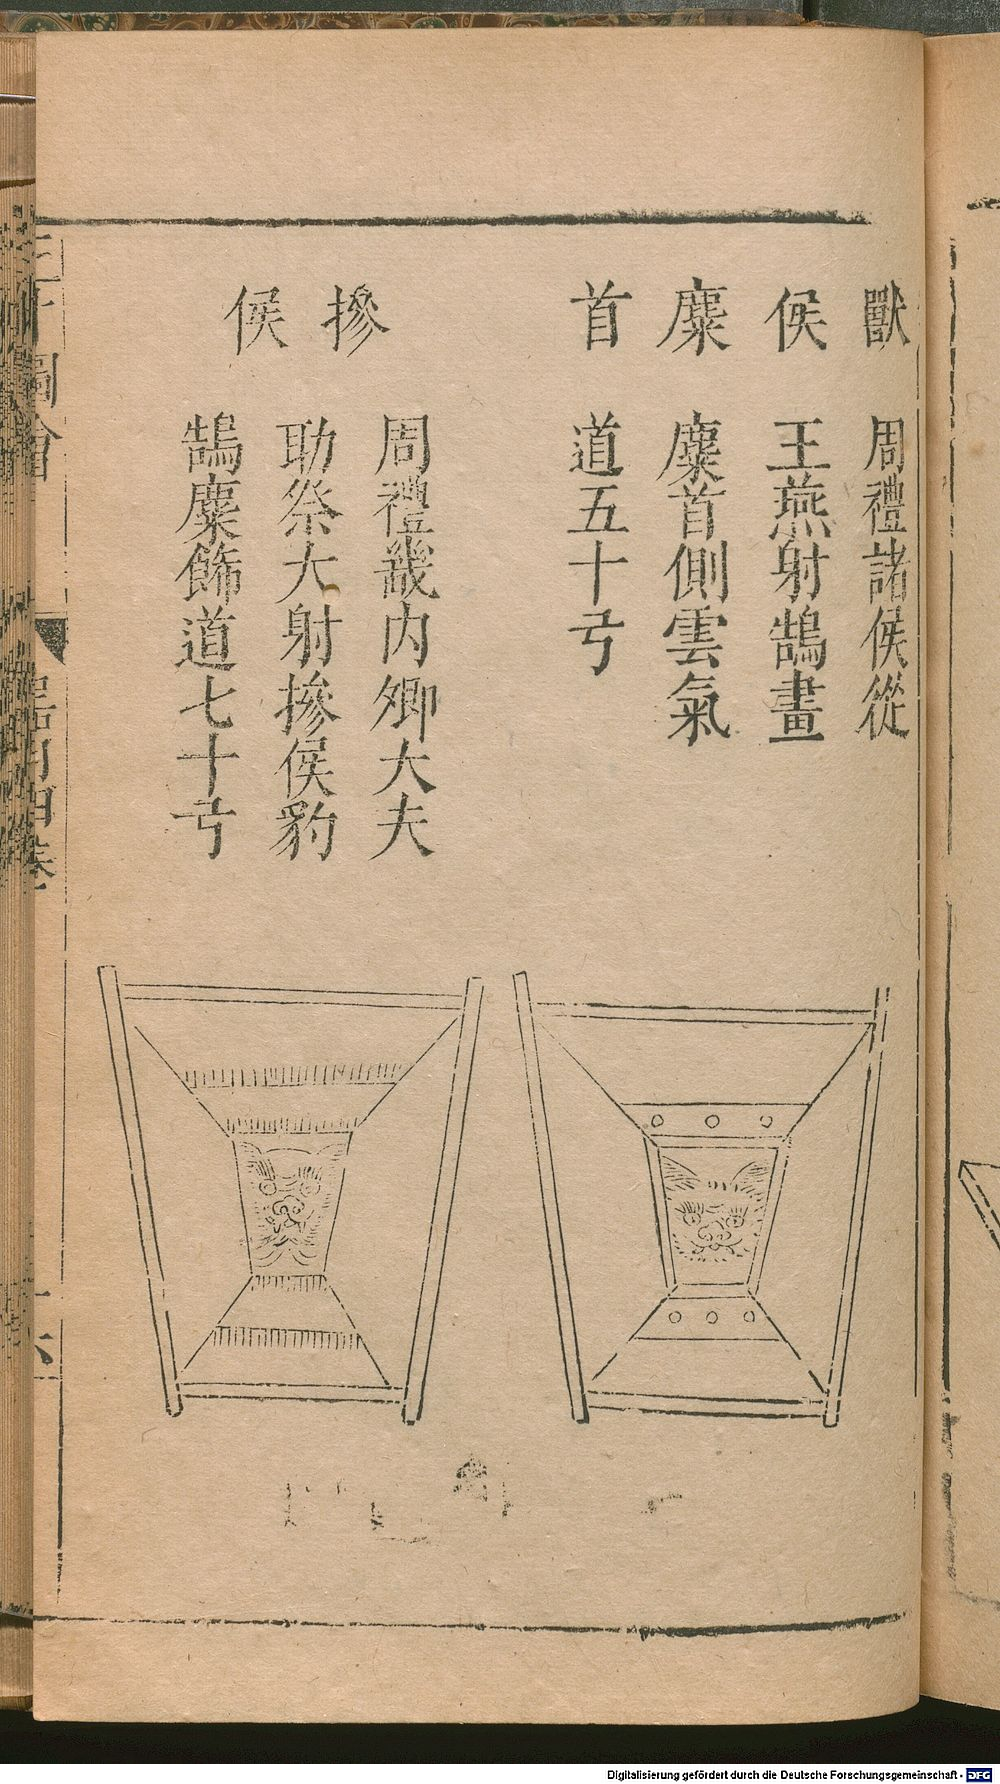 獸
周禮諸侯從
侯
王燕射鵠畫
麋
麋首側雲氣
首
道五十弓
摻
侯
周禮畿內卿大夫
助祭大射摻侯豹
鵠麋飾道七十弓
Digitalisierung gefördert durch die Deutsche Forschungsgemeinschaft - DFG